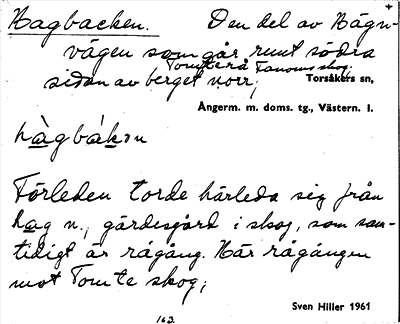 Hagbacken. Den del av Hägn-
vägen som går runt södra
Tomterå Fanoms skog.
sidan av berget norr; Torsåkers sn,
Ångerm. m. doms. tg., Västern. l.
hàgbák∂n
Förleden torde härleda sig från
hag n., gärdesgård i skog, som sam-
tidigt är rågång. Här rågången
mot Tomte skog;
Sven Hiller 1961
162.